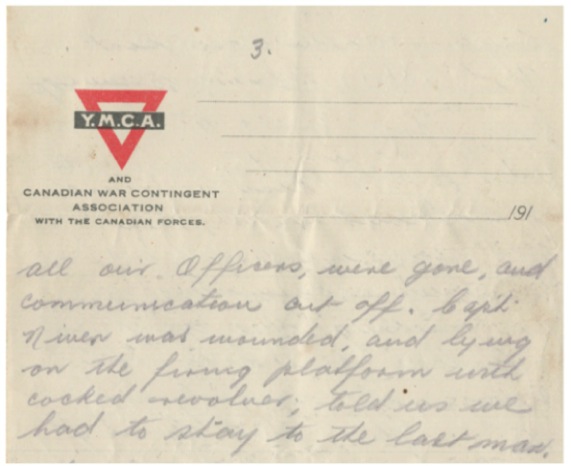 3.
Y.M.C.A.
AND
CANADIAN WAR CONTINGENT
ASSOCIATION
WITH THE CANADIAN FORCES.
191
all our Officers, were gone, and
communication cut off. Capt
Niven was wounded, and lying
on the firing platform with
cocked revolver, told us we
had to stay to the last man.